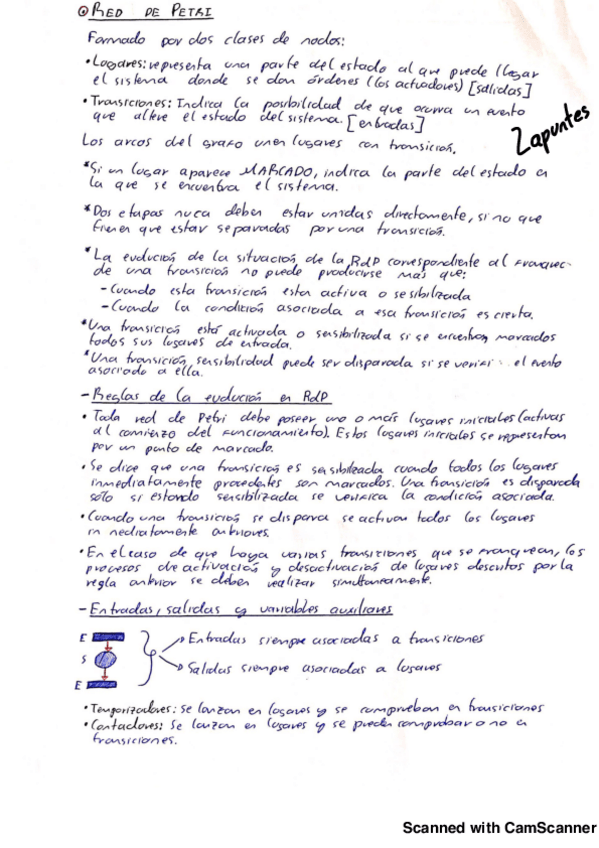 RED DE PETRI
Formado por dos clases de nodos:
• Lugares: representa una parte del estado al que puede llegar
el sistema donde se dan órdenes (los actuadores) [salidas]
• Transiciones: Indica la posibilidad de que ocurra un evento
que altere el estado del sistema. [entradas]
2apuntes
Los arcos del grafo unen lugares con transición.
*Si un lugar aparece MARCADO, indica la parte del estado en
la que se encuentra el sistema.
*Dos etapas nunca deben estar unidas directamente, si no que
tienen que estar separadas por una transición.
*La evolución de la situación de la RdP correspondiente al franqueo
de una transición no puede producirse más que:
- Cuando esta transición esta activa o sesibilizada
- Cuando la condición asociada a esa transición es cierta.
*Una transición está activada o sensibilizada si se encuentran marcados
todos sus lugares de entrada.
*Una transición sensibilidad puede ser disparada si se el evento
asociado a ella.
- Reglas de la evolución en RdP
• Toda red de Petri debe poseer uno o más lugares iniciales (activas
al comienzo del funcionamiento). Estos lugares iniciales se representan
por un punto de marcado.
• Se dice que una transición es sensibilizada cuando todos los lugares
inmediatamente procedentes son marcados. Una transición es disparada
sólo si estando sensibilizada se verifica la condición asociada.
• Cuando una transición se dispara se activan todos los lugares
inmediatamente anteriores.
• En el caso de que haya varias transiciones que se franquean, los
procesos de activación y desactivación de lugares descritos por la
regla anterior se deben realizar simultaneamente.
- Entradas, salidas y variables auxiliares
E
Entradas siempre asociadas a transiciones
S
Salidas siempre asociadas a lugares
E
• Temporizadores: se lanzan en lugares y se comprueban en transiciones
• Contadores: Se lanzan en lugares y se pueden comprobar o no en
transiciones.
Scanned with CamScanner